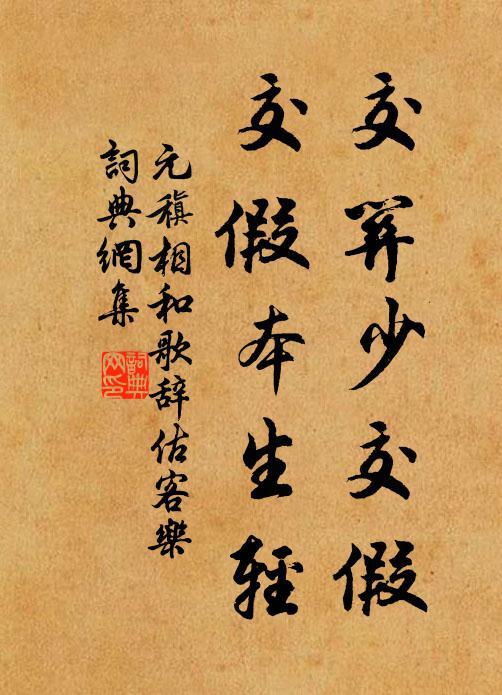 交關少交假
交假本生輕
元稹相和歌辞估客樂
詞典網集
詞典
网印